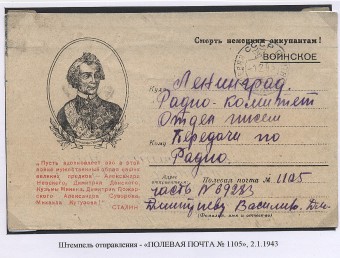 Смерть немецким оккупантам!
ВОИНСКОЕ
СССР
Куда
Ленинград.
Радио-комитет
Отдел писем
Кому
Передачи по
Радио.
"Пусть вдохновляет вас в этой
войне мужественный образ наших
великих предков — Александра
Невского, Димитрия Донского,
Кузьмы Минина, Димитрия Пожар-
ского, Александра Суворова,
Михаила Кутузова!"
СТАЛИН
Полевая почта № 1105
Адрес
часть № 692
Василию
Штемпель отправления - «ПОЛЕВАЯ ПОЧТА № 1105», 2.1.1943